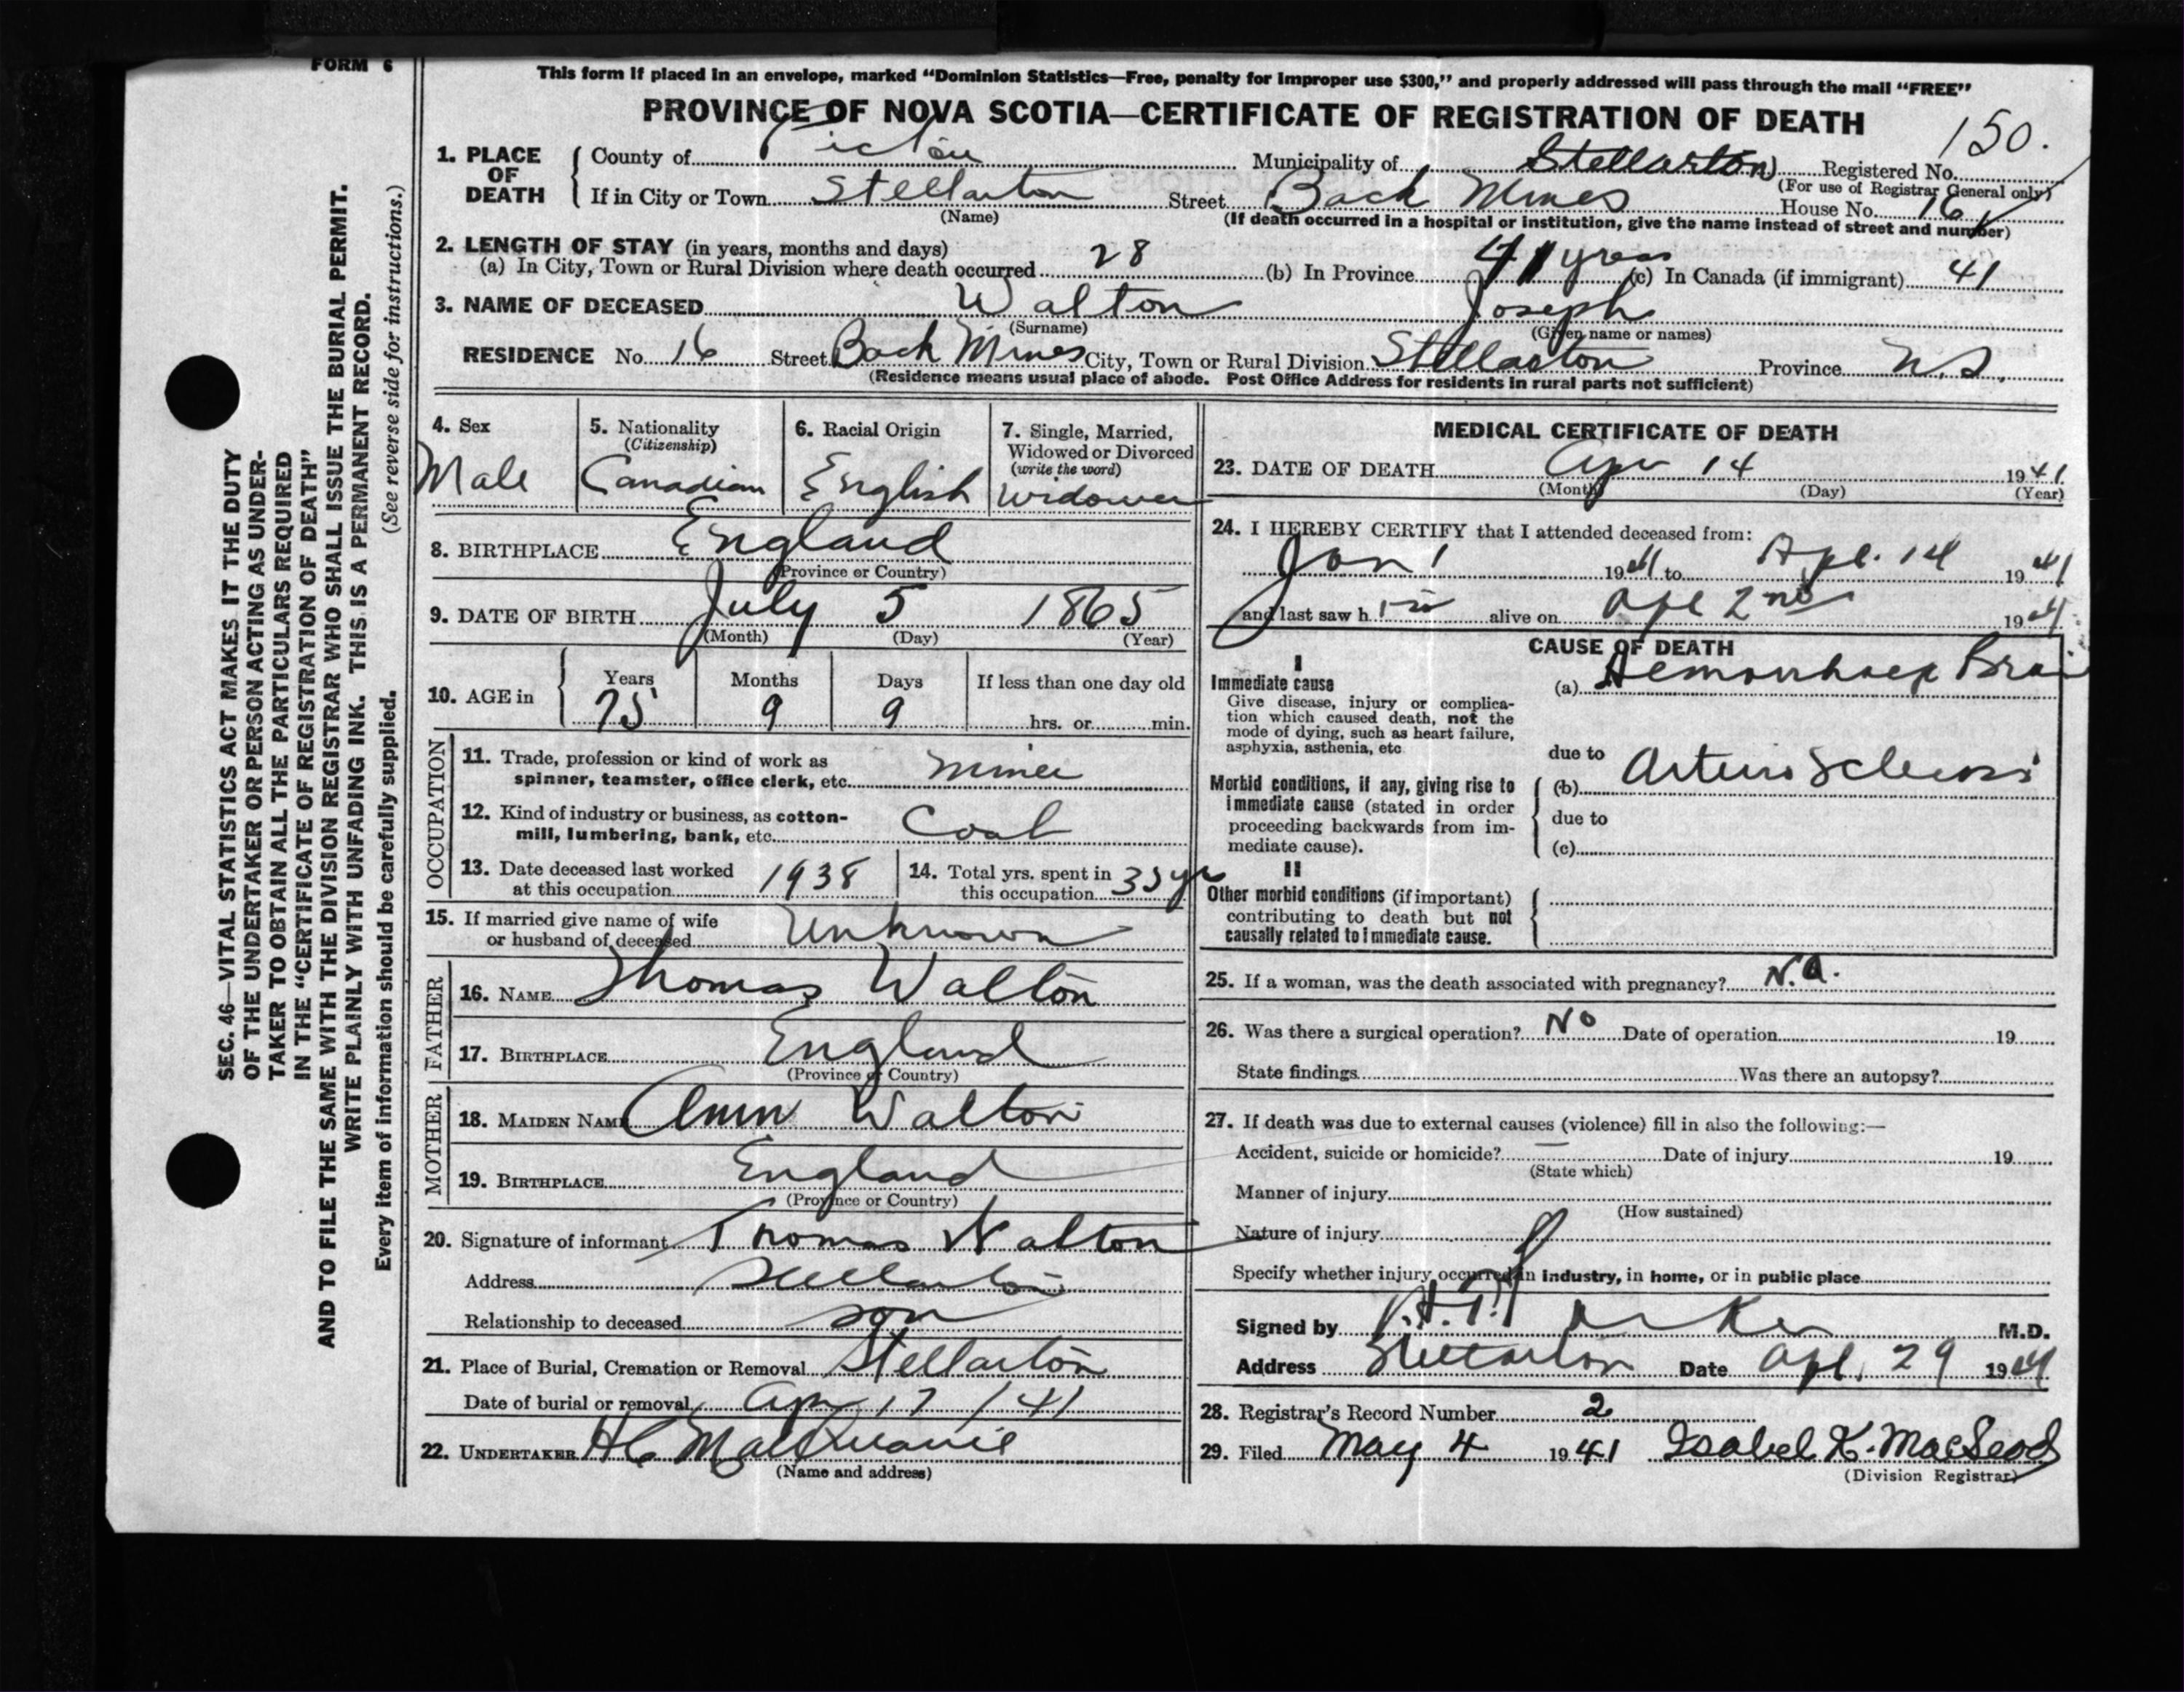 FORM 6
This form if placed in an envelope, marked “Dominion Statistics—Free, penalty for improper use $300,” and properly addressed will pass through the mail “FREE”
PROVINCE OF NOVA SCOTIA—CERTIFICATE OF REGISTRATION OF DEATH
150.
1. PLACE OF DEATH
County of Pictou Municipality of Stellarton Registered No.
(For use of Registrar General only)
If in City or Town Stellarton Street Back Mines House No. 16
(Name) (If death occurred in a hospital or institution, give the name instead of street and number)
2. LENGTH OF STAY (in years, months and days)
(a) In City, Town or Rural Division where death occurred 28 (b) In Province 41 years (c) In Canada (if immigrant) 41
3. NAME OF DECEASED Walton Joseph
(Surname) (Given name or names)
RESIDENCE No. 16 Street Back Mines City, Town or Rural Division Stellarton Province N.S.
(Residence means usual place of abode. Post Office Address for residents in rural parts not sufficient)
4. Sex
Male
5. Nationality
(Citizenship)
Canadian
6. Racial Origin
English
7. Single, Married,
Widowed or Divorced
(write the word)
Widower
8. BIRTHPLACE England
(Province or Country)
9. DATE OF BIRTH July 5 1865
(Month) (Day) (Year)
10. AGE in
Years Months Days If less than one day old
75 9 9 hrs. or min.
OCCUPATION
11. Trade, profession or kind of work as
spinner, teamster, office clerk, etc. miner
12. Kind of industry or business, as cotton-
mill, lumbering, bank, etc. Coal
13. Date deceased last worked
at this occupation 1938
14. Total yrs. spent in
this occupation 35 yr
15. If married give name of wife
or husband of deceased Unknown
FATHER
16. NAME Thomas Walton
17. BIRTHPLACE England
(Province or Country)
MOTHER
18. MAIDEN NAME Ann Walton
19. BIRTHPLACE England
(Province or Country)
20. Signature of informant Thomas Walton
Address Stellarton
Relationship to deceased son
21. Place of Burial, Cremation or Removal Stellarton
Date of burial or removal Apr 17 / 41
22. UNDERTAKER
(Name and address)
MEDICAL CERTIFICATE OF DEATH
23. DATE OF DEATH Apr 14 1941
(Month) (Day) (Year)
24. I HEREBY CERTIFY that I attended deceased from:
Jan 1 1941 to Apl. 14 1941
and last saw h im alive on Apl 2nd 1941
CAUSE OF DEATH
I
Immediate cause
Give disease, injury or complica-
tion which caused death, not the
mode of dying, such as heart failure,
asphyxia, asthenia, etc.
(a) Brain
due to
Morbid conditions, if any, giving rise to
immediate cause (stated in order
proceeding backwards from im-
mediate cause).
(b)
due to
(c)
II
Other morbid conditions (if important)
contributing to death but not
causally related to immediate cause.
25. If a woman, was the death associated with pregnancy? N.A.
26. Was there a surgical operation? No Date of operation 19
State findings Was there an autopsy?
27. If death was due to external causes (violence) fill in also the following:—
Accident, suicide or homicide? — Date of injury 19
(State which)
Manner of injury
(How sustained)
Nature of injury
Specify whether injury occurred in industry, in home, or in public place
Signed by M.D.
Address Stellarton Date Apl. 29 1941
28. Registrar's Record Number 2
29. Filed May 4 1941 Isabel K. MacLeod
(Division Registrar)
SEC. 46—VITAL STATISTICS ACT MAKES IT THE DUTY
OF THE UNDERTAKER OR PERSON ACTING AS UNDER-
TAKER TO OBTAIN ALL THE PARTICULARS REQUIRED
IN THE “CERTIFICATE OF REGISTRATION OF DEATH”
AND TO FILE THE SAME WITH THE DIVISION REGISTRAR WHO SHALL ISSUE THE BURIAL PERMIT.
WRITE PLAINLY WITH UNFADING INK. THIS IS A PERMANENT RECORD.
Every item of information should be carefully supplied. (See reverse side for instructions.)